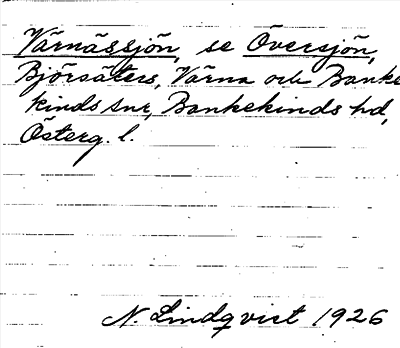 Värnässjön, se Översjön,
Björsäters, Värna och Banke
kinds snr, Bankekinds hd,
Österg. l.
N. Lindqvist 1926